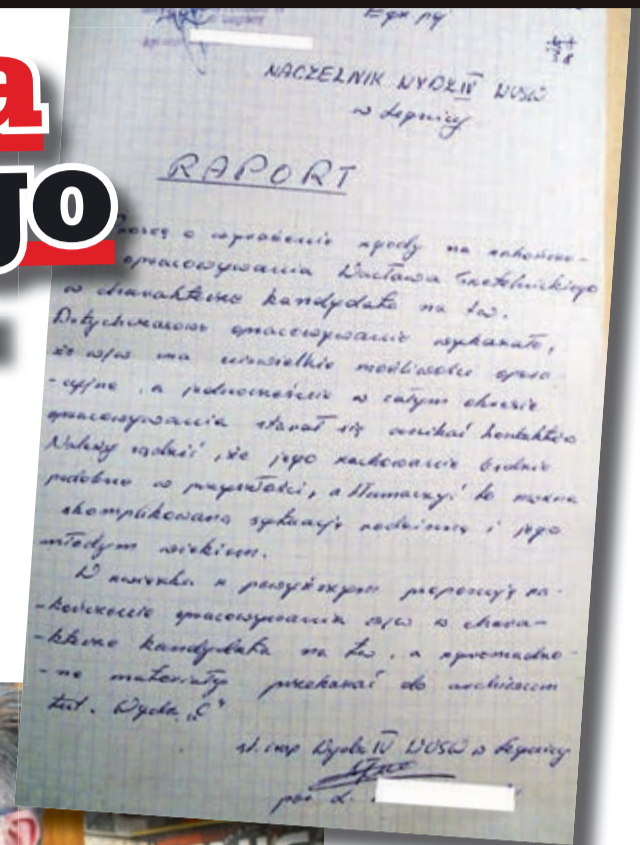 a
go
Egz. poj.
NACZELNIK WYDZ. IV WUSW
w Legnicy
RAPORT
Proszę o wyrażenie zgody na zakończe-
opracowywania Wacława Szetelnickiego
w charakterze kandydata na tw.
Dotychczasowe opracowywanie wykazało,
że w/w ma niewielkie możliwości opera-
-cyjne, a jednocześnie w całym okresie
opracowywania starał się unikać kontaktów.
Należy sądzić, że jego zachowanie będzie
podobne w przyszłości, a tłumaczyć to można
skomplikowaną sytuacją rodzinną i jego
młodym wiekiem.
W związku z powyższym proponuję za-
-kończenie opracowywania w/w w chara-
-kterze kandydata na tw. a zgromadzo-
-ne materiały przekazać do archiwum
tut. Wydz. „C”
st. insp Wydz. IV WUSW w Legnicy